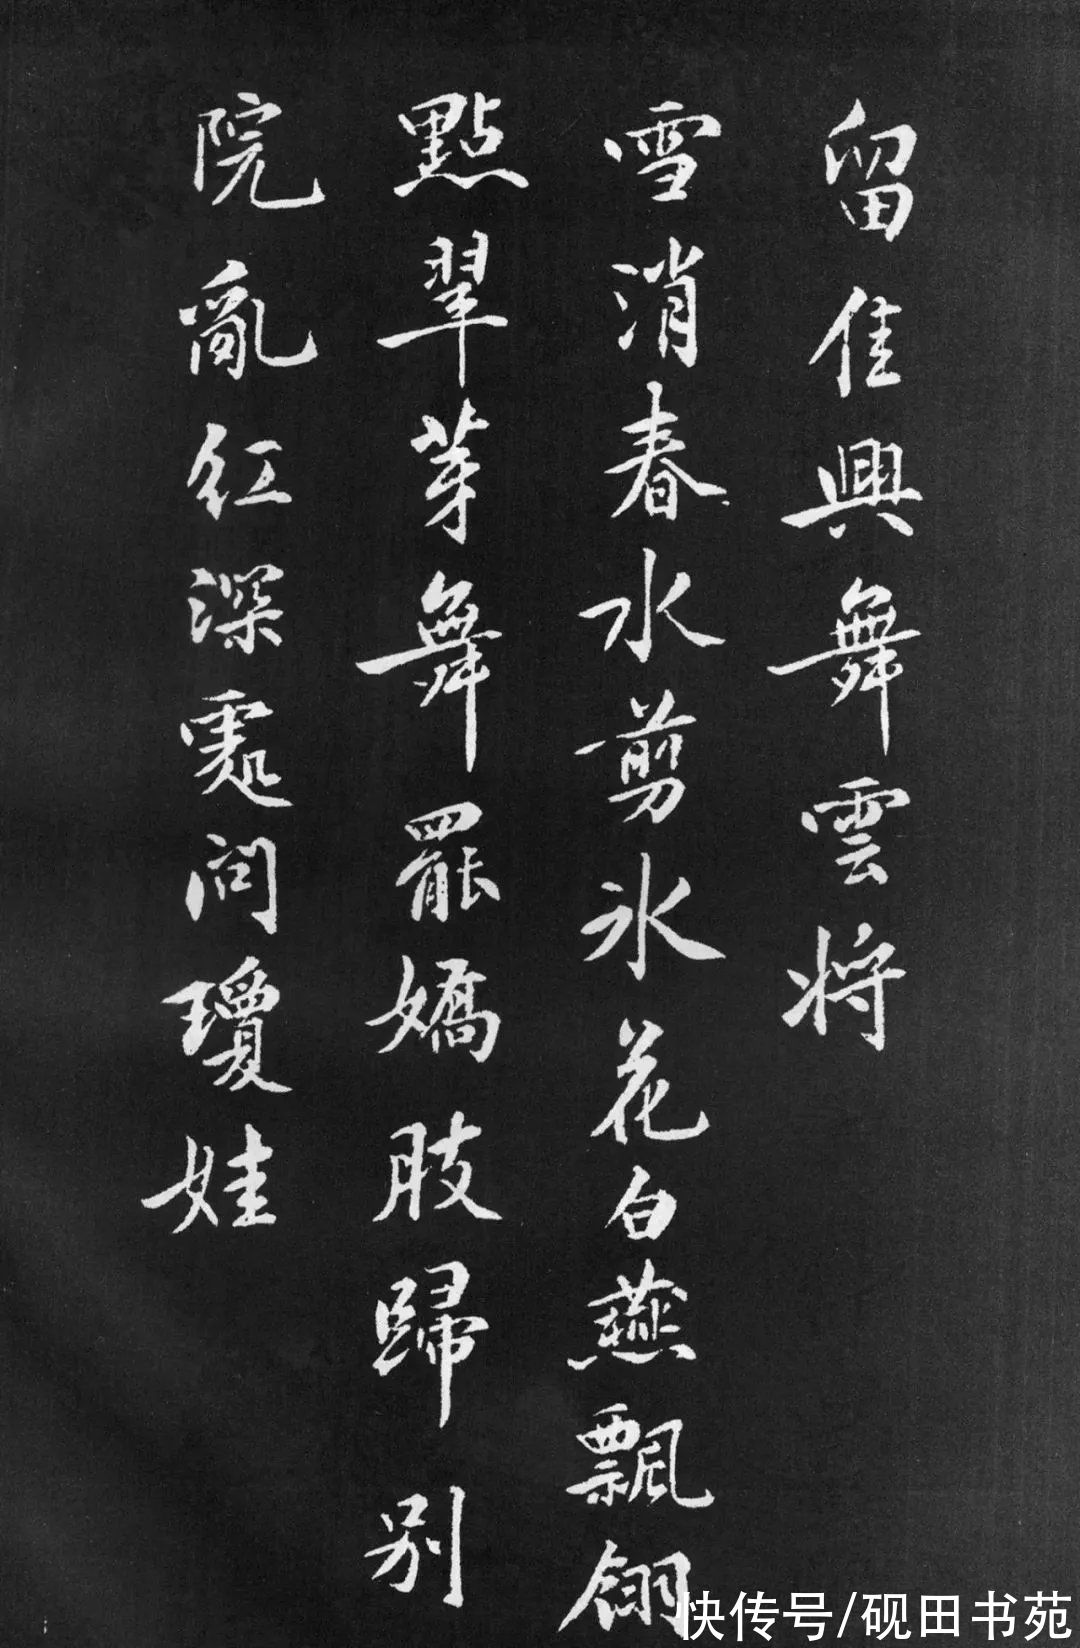 留佳興舞雲將
雪消春水剪氷花白燕飄翎
點翠芽舞罷嬌肢歸別
院亂紅深處問瓊娃
快传号/砚田书苑